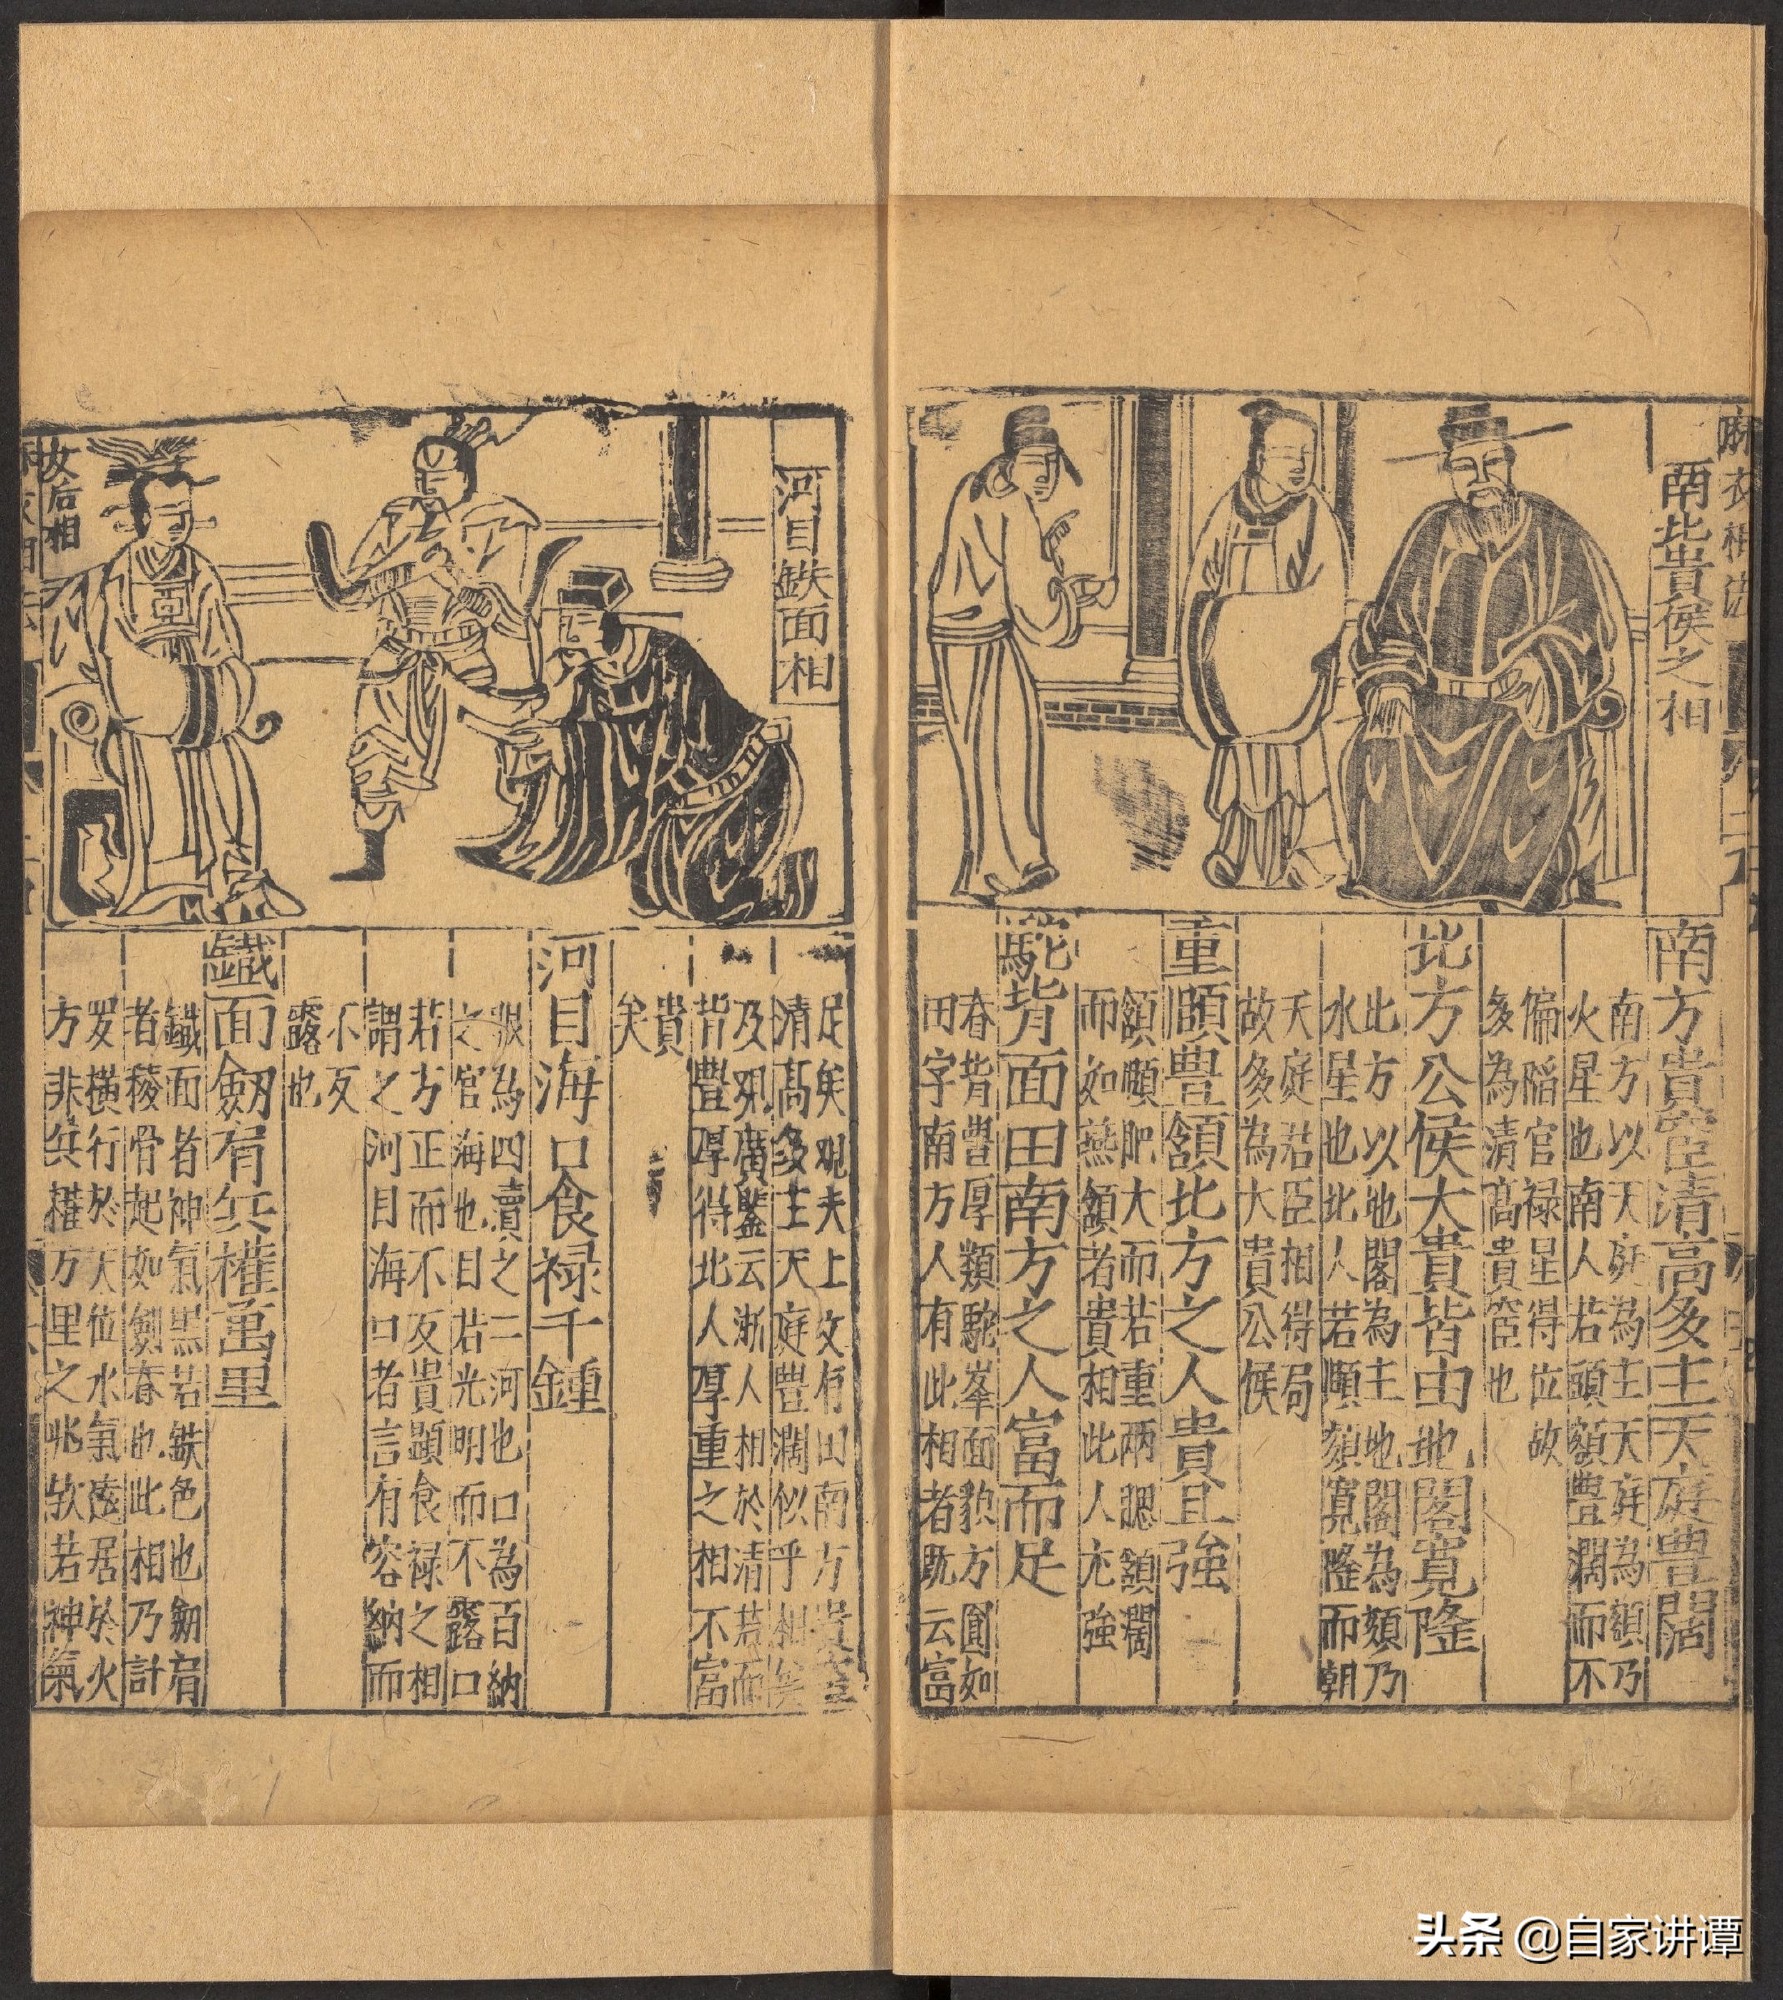 麻衣相法
南北貴侯之相
南方貴宦清高多主天庭豊闊
南方以天庭為主天庭為額乃
火星也南人若頭額豊濶而不
偏陷官禄星得位故
多為清高貴宦也
北方公侯大貴皆由地閣寛隆
北方以地閣為主地閣為頦乃
水星也北人若頤頦寛隆而朝
天庭若臣相得局
故多為大貴公候
重頤豊頷北方之人貴且強
頷頤肥大而若重兩腮頷濶
而如燕頷者貴相此人尤強
駝背面田南方之人富而足
脊背豊厚類駝峯面貌方圓如
田字南方人有此相者既云富
河目鉄面相
足矣观夫上文有田南方貴宦
清高多主天庭豊濶似乎相矦
及观廣鑒云浙人相於清若而
背豐厚得北人厚重之相不富
貴
矣
河目海口食禄千鍾
眼為四瀆之二河也口為百納
之官海也目若光明而不露口
若方正而不反貴顕食禄之相
謂之河目海口者言有容納而
不反
露也
鐵面劔眉兵權萬里
鐵面者神氣黑若鉄色也劔眉
者稜骨起如劍脊也此相乃計
罗横行於天位水氣遠居於火
方非兵權万里之兆欤若神氣
女后相
头条 @自家讲谭